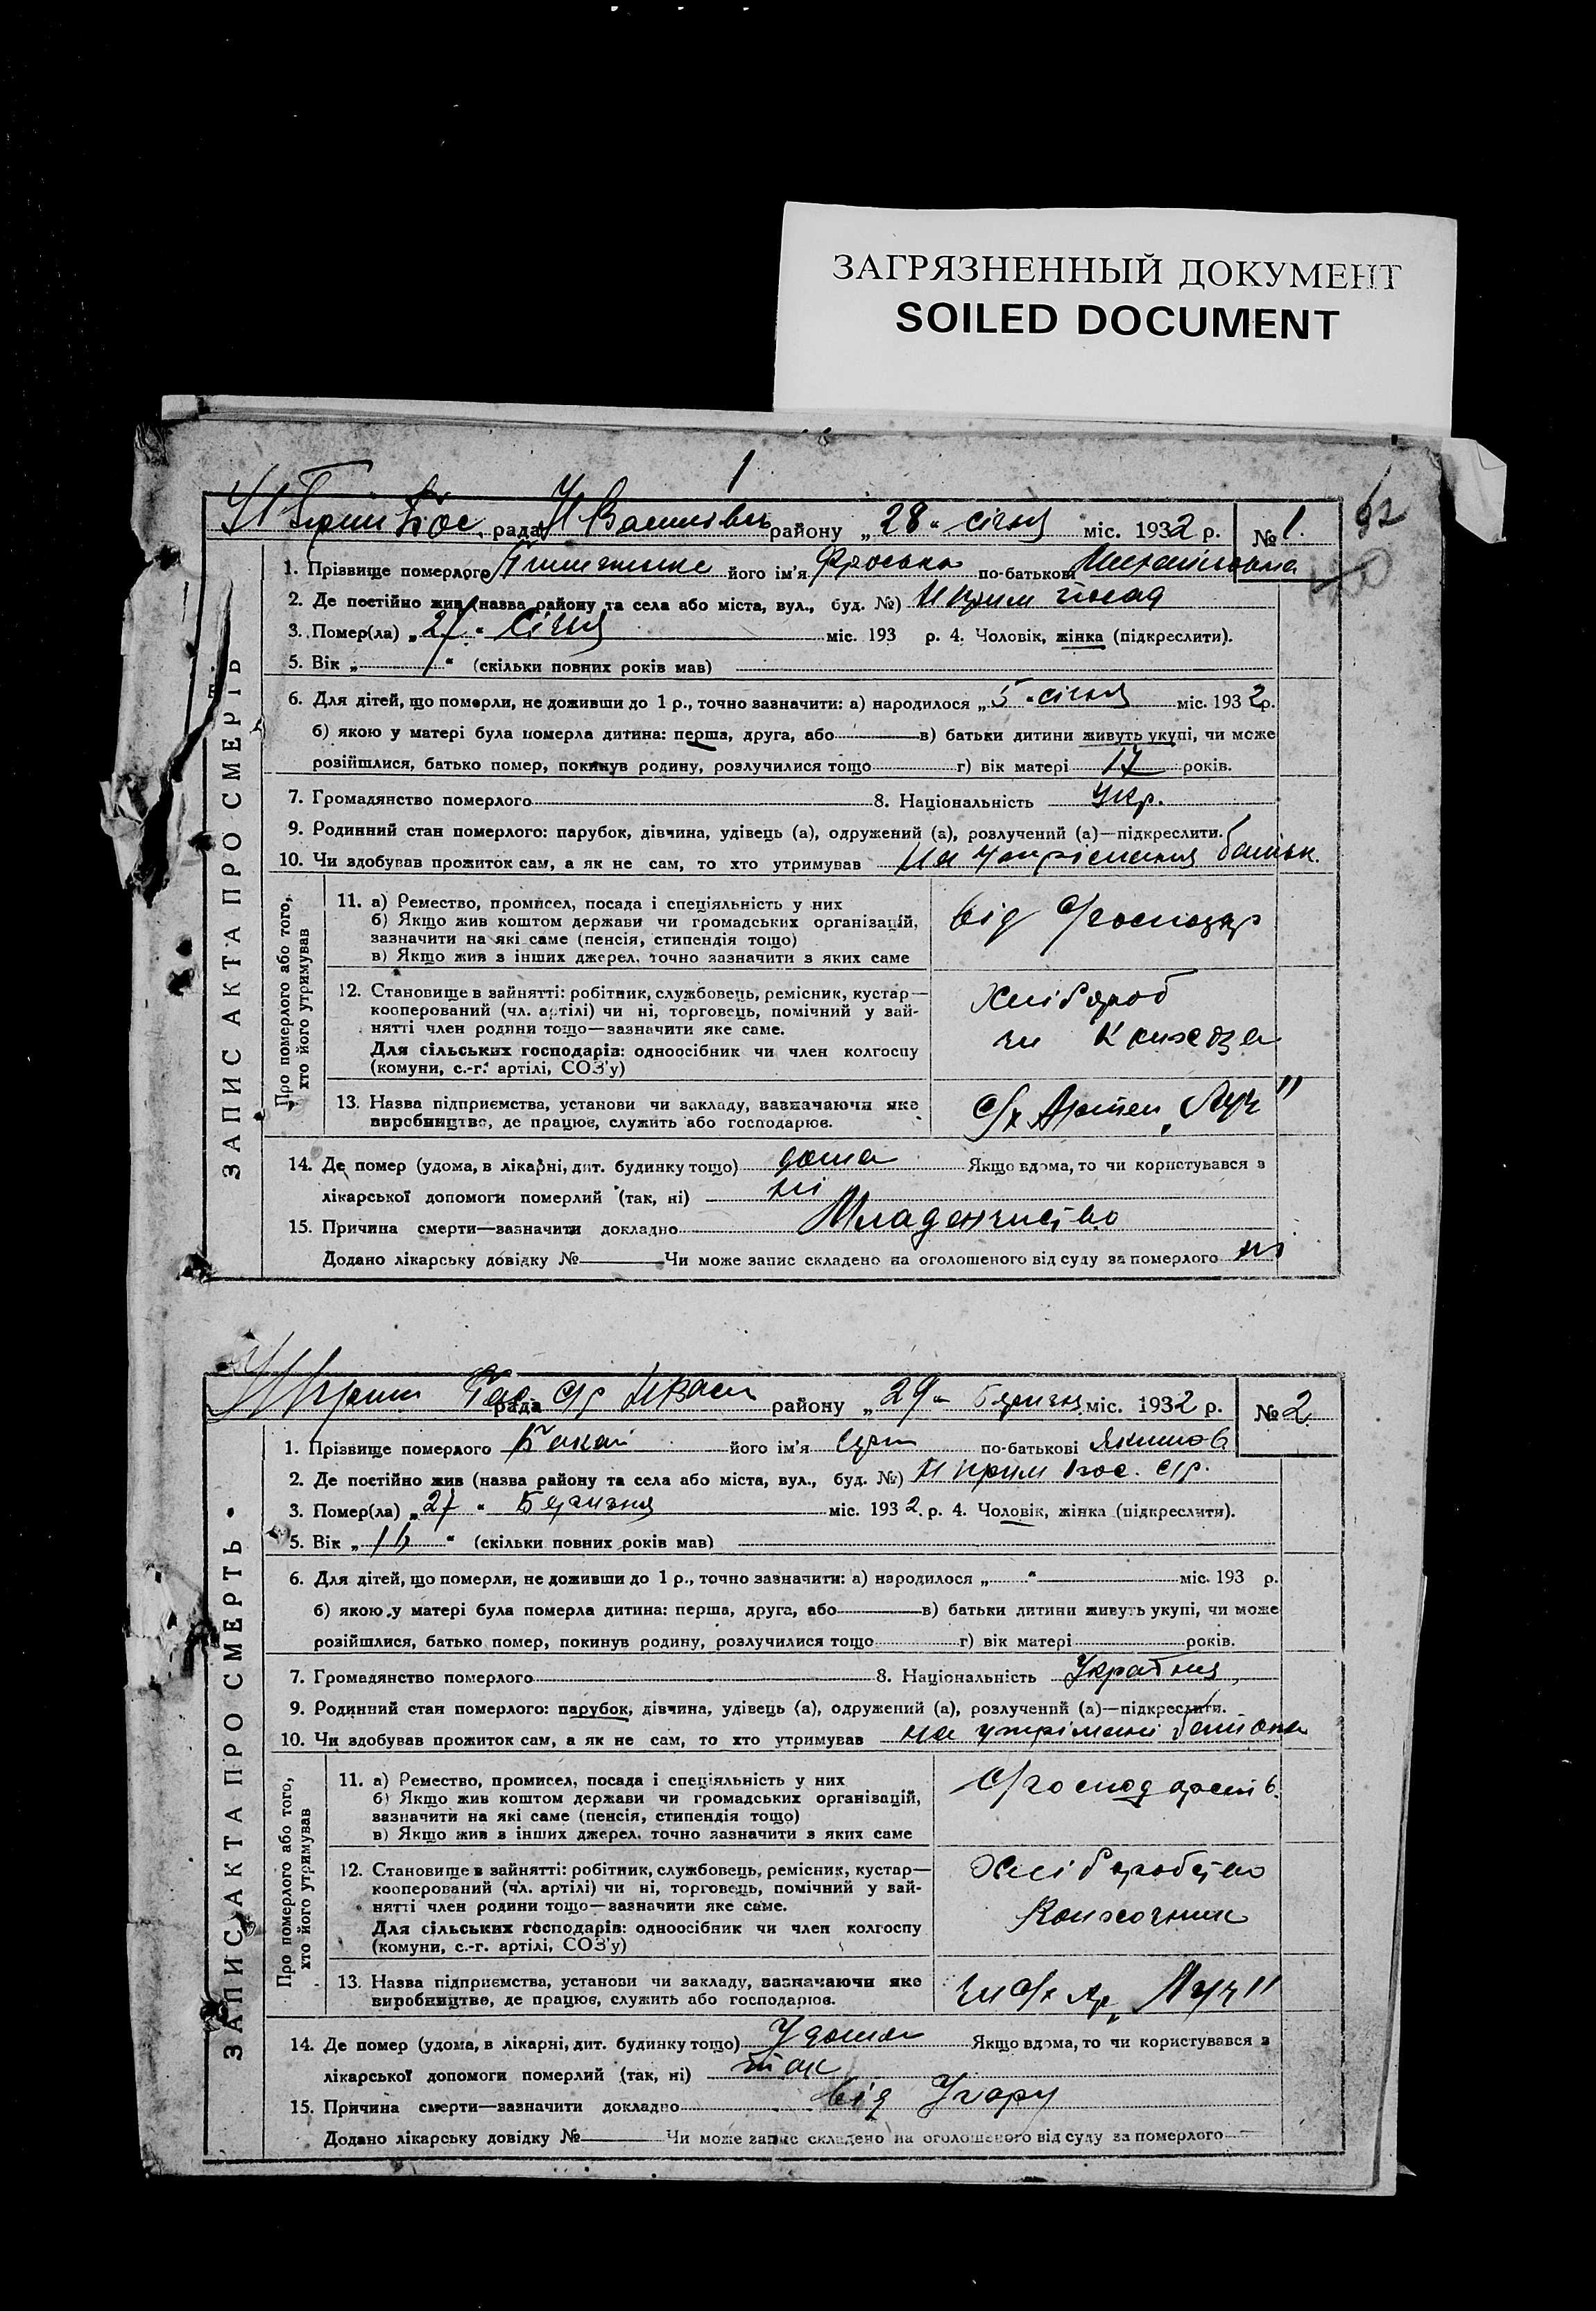 ЗАГРЯЗНЕННЫЙ ДОКУМЕНТ
SOILED DOCUMENT
1
рада районy „28" січня міс. 1932 р. № 1.
ЗАПИС АКТА ПРО СМЕРТЬ
1. Прізвище померлого його ім'я Фроська по-батькові Михайловна
2. Де постійно жив (назва району та села або міста, вул., буд. №)
3. Помер(ла) „27" Січня міс. 193 р. 4. Чоловік, жінка (підкреслити).
5. Вік „ " (скільки повних років мав)
6. Для дітей, що померли, не доживши до 1 р., точно зазначити: а) народилося „5" січня міс. 1932р.
б) якою у матері була померла дитина: перша, друга, або в) батьки дитини живуть укупі, чи може
розійшлися, батько помер, покинув родину, розлучилися тощо г) вік матері 17 років.
7. Громадянство померлого 8. Національність Укр.
9. Родинний стан померлого: парубок, дівчина, удівець (а), одружений (а), розлучений (а)—підкреслити.
10. Чи здобував прожиток сам, а як не сам, то хто утримував На батьк.
Про померлого або того, хто його утримував
11. а) Ремество, промисел, посада і спеціяльність у них
б) Якщо жив коштом держави чи громадських організацій,
зазначити на які саме (пенсія, стипендія тощо)
в) Якщо жив з інших джерел, точно зазначити з яких саме
від с/господар
12. Становище в зайнятті: робітник, службовець, ремісник, кустар—
кооперований (чл. артілі) чи ні, торговець, помічний у зай-
нятті член родини тощо—зазначити яке саме.
Для сільських господарів: одноосібник чи член колгоспу
(комуни, с.-г. артілі, СОЗ'у)
Хлібороб
чл Колхоза
13. Назва підприємства, установи чи закладу, зазначаючи яке
виробництво, де працює, служить або господарює.
с/х Артель „Луч"
14. Де помер (удома, в лікарні, дит. будинку тощо) дома Якщо вдома, то чи користувався з
лікарської допомоги померлий (так, ні) ні
15. Причина смерти—зазначити докладно Младенчиство
Додано лікарську довідку № Чи може запис складено на оголошеного від суду за померлого ні
рада с/р районy „29" Березня міс. 1932 р. № 2
ЗАПИС АКТА ПРО СМЕРТЬ
1. Прізвище померлого Бакай його ім'я по-батькові Якимов
2. Де постійно жив (назва району та села або міста, вул., буд. №) пос. с/р.
3. Помер(ла) „27" Березня міс. 1932. р. 4. Чоловік, жінка (підкреслити).
5. Вік „16" (скільки повних років мав)
6. Для дітей, що померли, не доживши до 1 р., точно зазначити: а) народилося „ " міс. 193 р.
б) якою у матері була померла дитина: перша, друга, або в) батьки дитини живуть укупі, чи може
розійшлися, батько помер, покинув родину, розлучилися тощо г) вік матері років.
7. Громадянство померлого 8. Національність
9. Родинний стан померлого: парубок, дівчина, удівець (а), одружений (а), розлучений (а)—підкреслити.
10. Чи здобував прожиток сам, а як не сам, то хто утримував на утрімані
Про померлого або того, хто його утримував
11. а) Ремество, промисел, посада і спеціяльність у них
б) Якщо жив коштом держави чи громадських організацій,
зазначити на які саме (пенсія, стипендія тощо)
в) Якщо жив з інших джерел, точно зазначити з яких саме
12. Становище в зайнятті: робітник, службовець, ремісник, кустар—
кооперований (чл. артілі) чи ні, торговець, помічний у зай-
нятті член родини тощо—зазначити яке саме.
Для сільських господарів: одноосібник чи член колгоспу
(комуни, с.-г. артілі, СОЗ'у)
Хліборобство
Колхозник
13. Назва підприємства, установи чи закладу, зазначаючи яке
виробництво, де працює, служить або господарює.
чл с/х Ар „Луч"
14. Де помер (удома, в лікарні, дит. будинку тощо) Удома Якщо вдома, то чи користувався з
лікарської допомоги померлий (так, ні) так
15. Причина смерти—зазначити докладно від Угару
Додано лікарську довідку № Чи може запис складено на оголошеного від суду за померлого